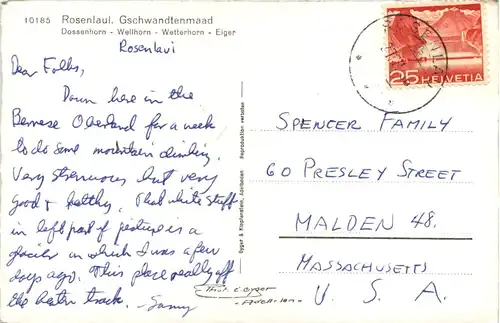 10185 Rosenlaui. Gschwandtenmaad
Dossenhorn - Wellhorn - Wetterhorn - Eiger
Rosenlavi
Dear Folks,
Down here in the
Bernese Oberland for a week
to do some mountain climbing.
Very strenuous but very
good & healthy. That white stuff
in left part of picture is a
glacier in which I was a few
days ago. This place really off
the beaten track. -
Egger & Klopfenstein, Adelboden Reproduktion verboten
25 HELVETIA
SPENCER FAMILY
60 PRESLEY STREET
MALDEN 48.
MASSACHUSETTS
U. S. A.